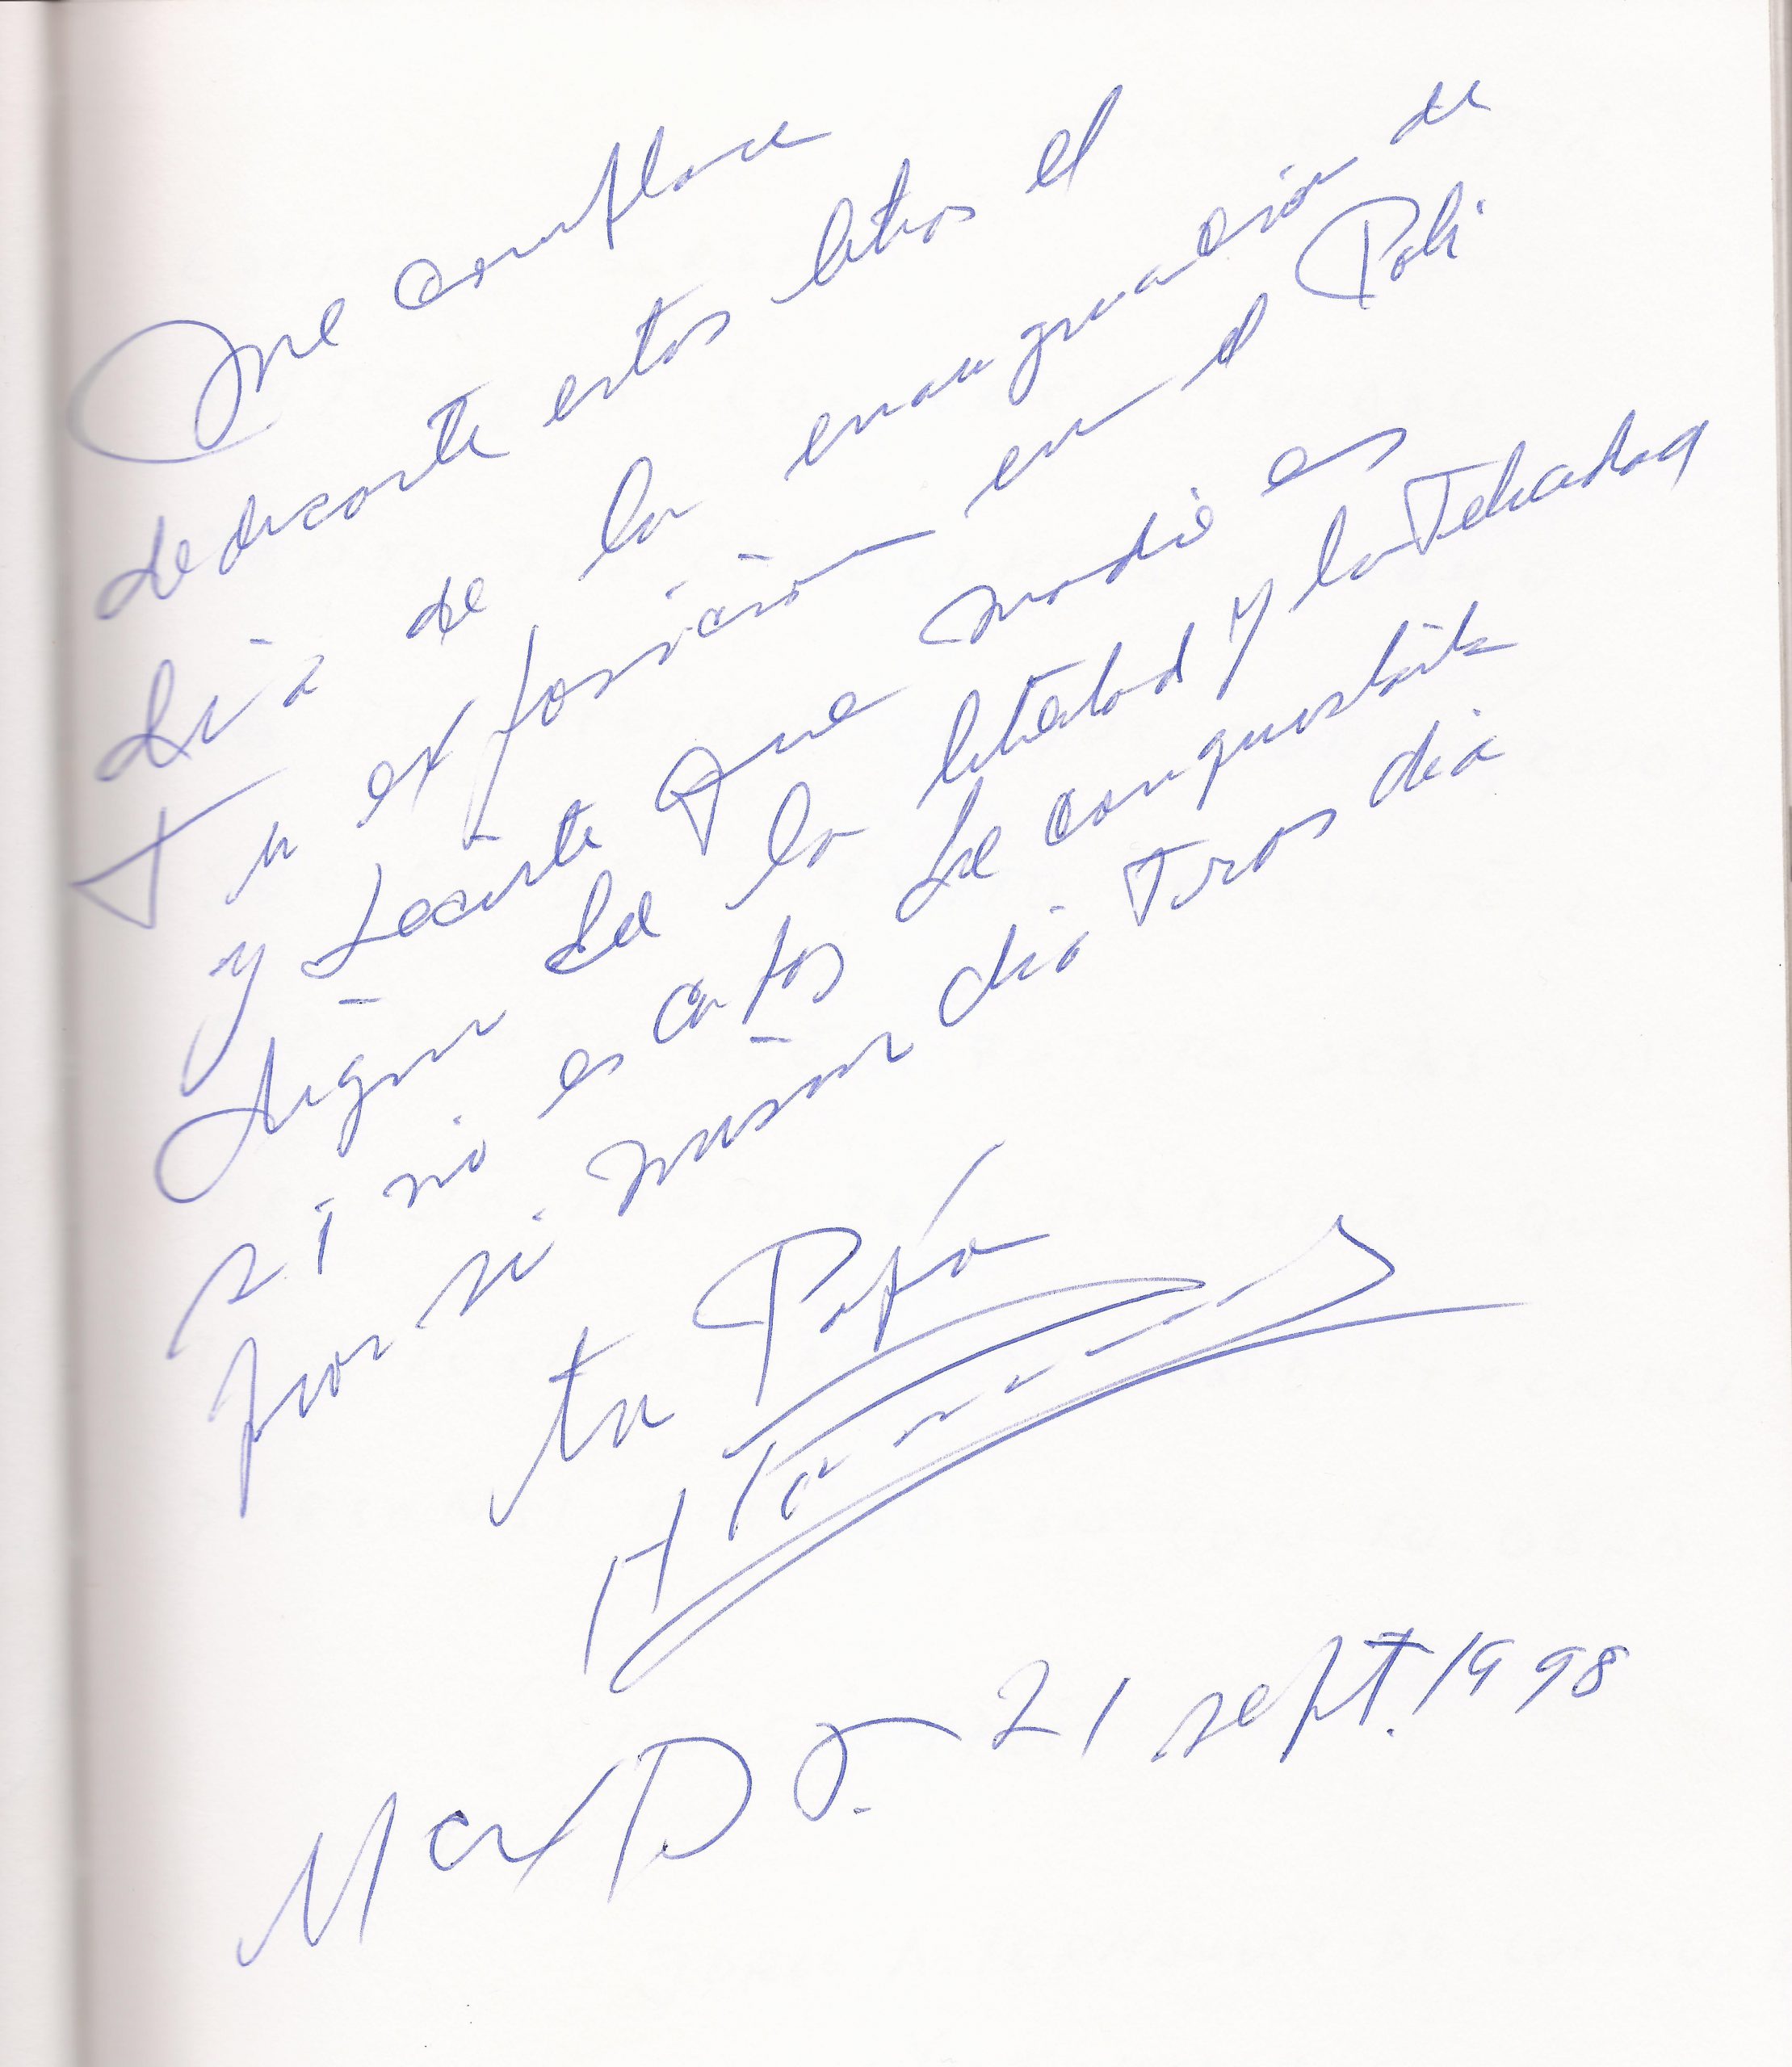 Me complace
dedicarte estas letras el
día de la enauguración de
Tu exposición en el Poli
y Decirte que nadie es
digno de la libertad y la Felicidad
si no es capas de conquistarla
por si mismo día Tras día
tu Papá
H
21 sept. 1998